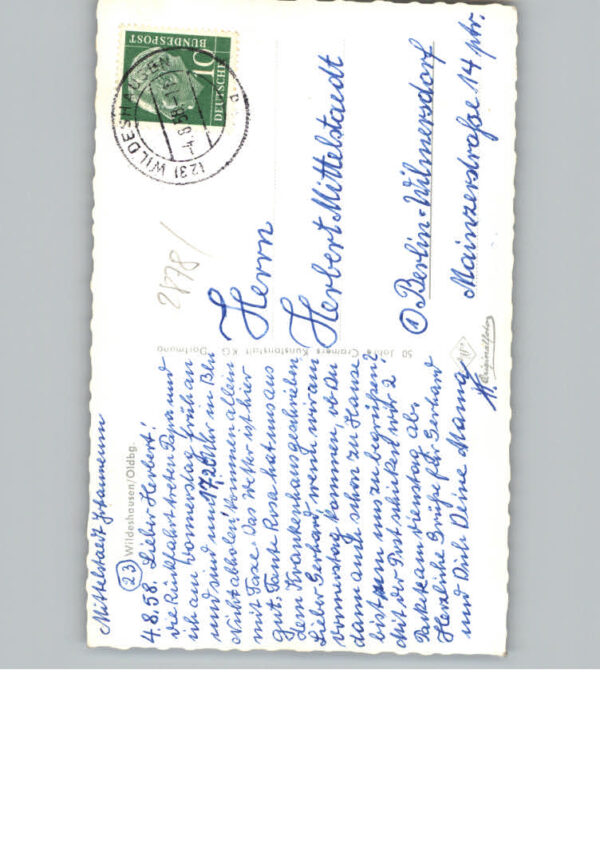 Mittelstaedt Johannenn
(23) Wildeshausen/Oldbg.
4.8.58. Lieber Herbert!
die Rückfahrt treten Papa und
ich am Donnerstag früh an
und sind um 17,- Uhr in Bln
Nicht abholen, kommen allein
mit Taxe. Das Wetter ist hier
gut. Tante Rosa hat uns aus
dem Krankenhaus geschrieben.
Lieber Gerhard, werden wir am
Donnerstag kommen, ob Du
dann auch schon zu Hause
bist, um uns zu begrüßen?
Mit der Post schicken wir 2
Pakete am Dienstag ab.
Herzliche Grüße für Gerhard
und Dich Deine Mama
50 Jahre Cramers Kunstanstalt K.G. Dortmund
Originalfoto
2878/
DEUTSCHE
BUNDESPOST
10
(23) WILDESHAUSEN
-4.8.58-13
a
Herrn
Herbert Mittelstaedt
① Berlin-Wilmersdorf
Mainzerstraße 14 ptr.